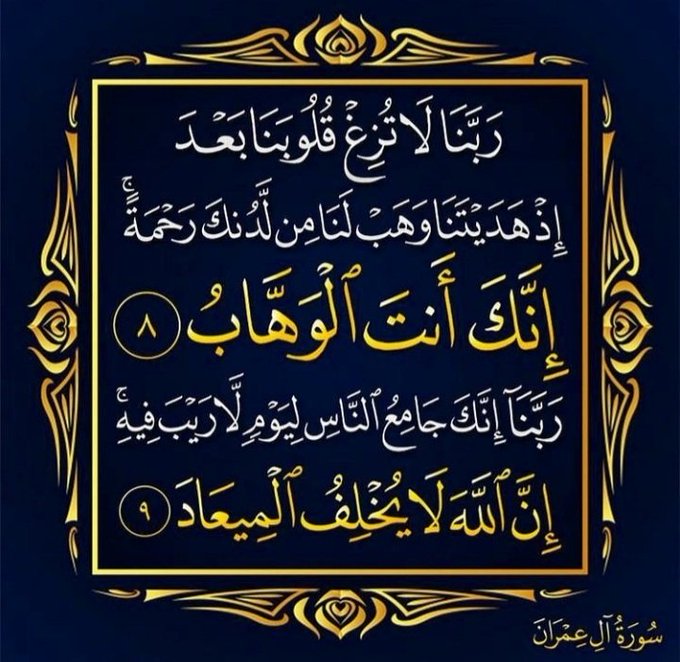 رَبَّنَا لَا تُزِغْ قُلُوبَنَا بَعْدَ
إِذْ هَدَيْتَنَا وَهَبْ لَنَا مِن لَّدُنكَ رَحْمَةً ۚ
إِنَّكَ أَنتَ ٱلْوَهَّابُ ٨
رَبَّنَآ إِنَّكَ جَامِعُ ٱلنَّاسِ لِيَوْمٍ لَّا رَيْبَ فِيهِ ۚ
إِنَّ ٱللَّهَ لَا يُخْلِفُ ٱلْمِيعَادَ ٩
سُورَةُ آلِ عِمْرَانَ